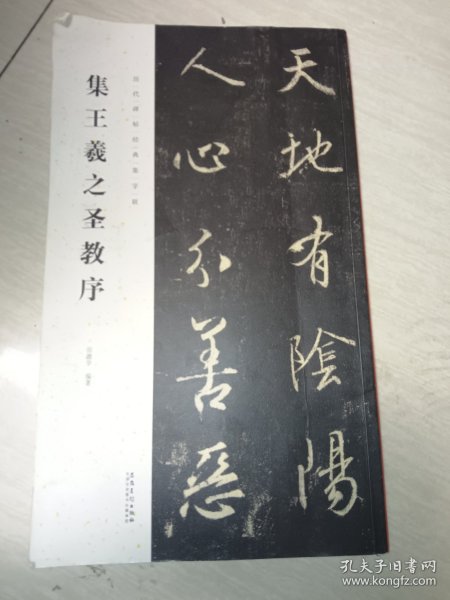 天地有陰陽
人心分善惡
历代碑帖经典集字版
集王羲之圣教序
编著
孔夫子旧书网
www.kongfz.com